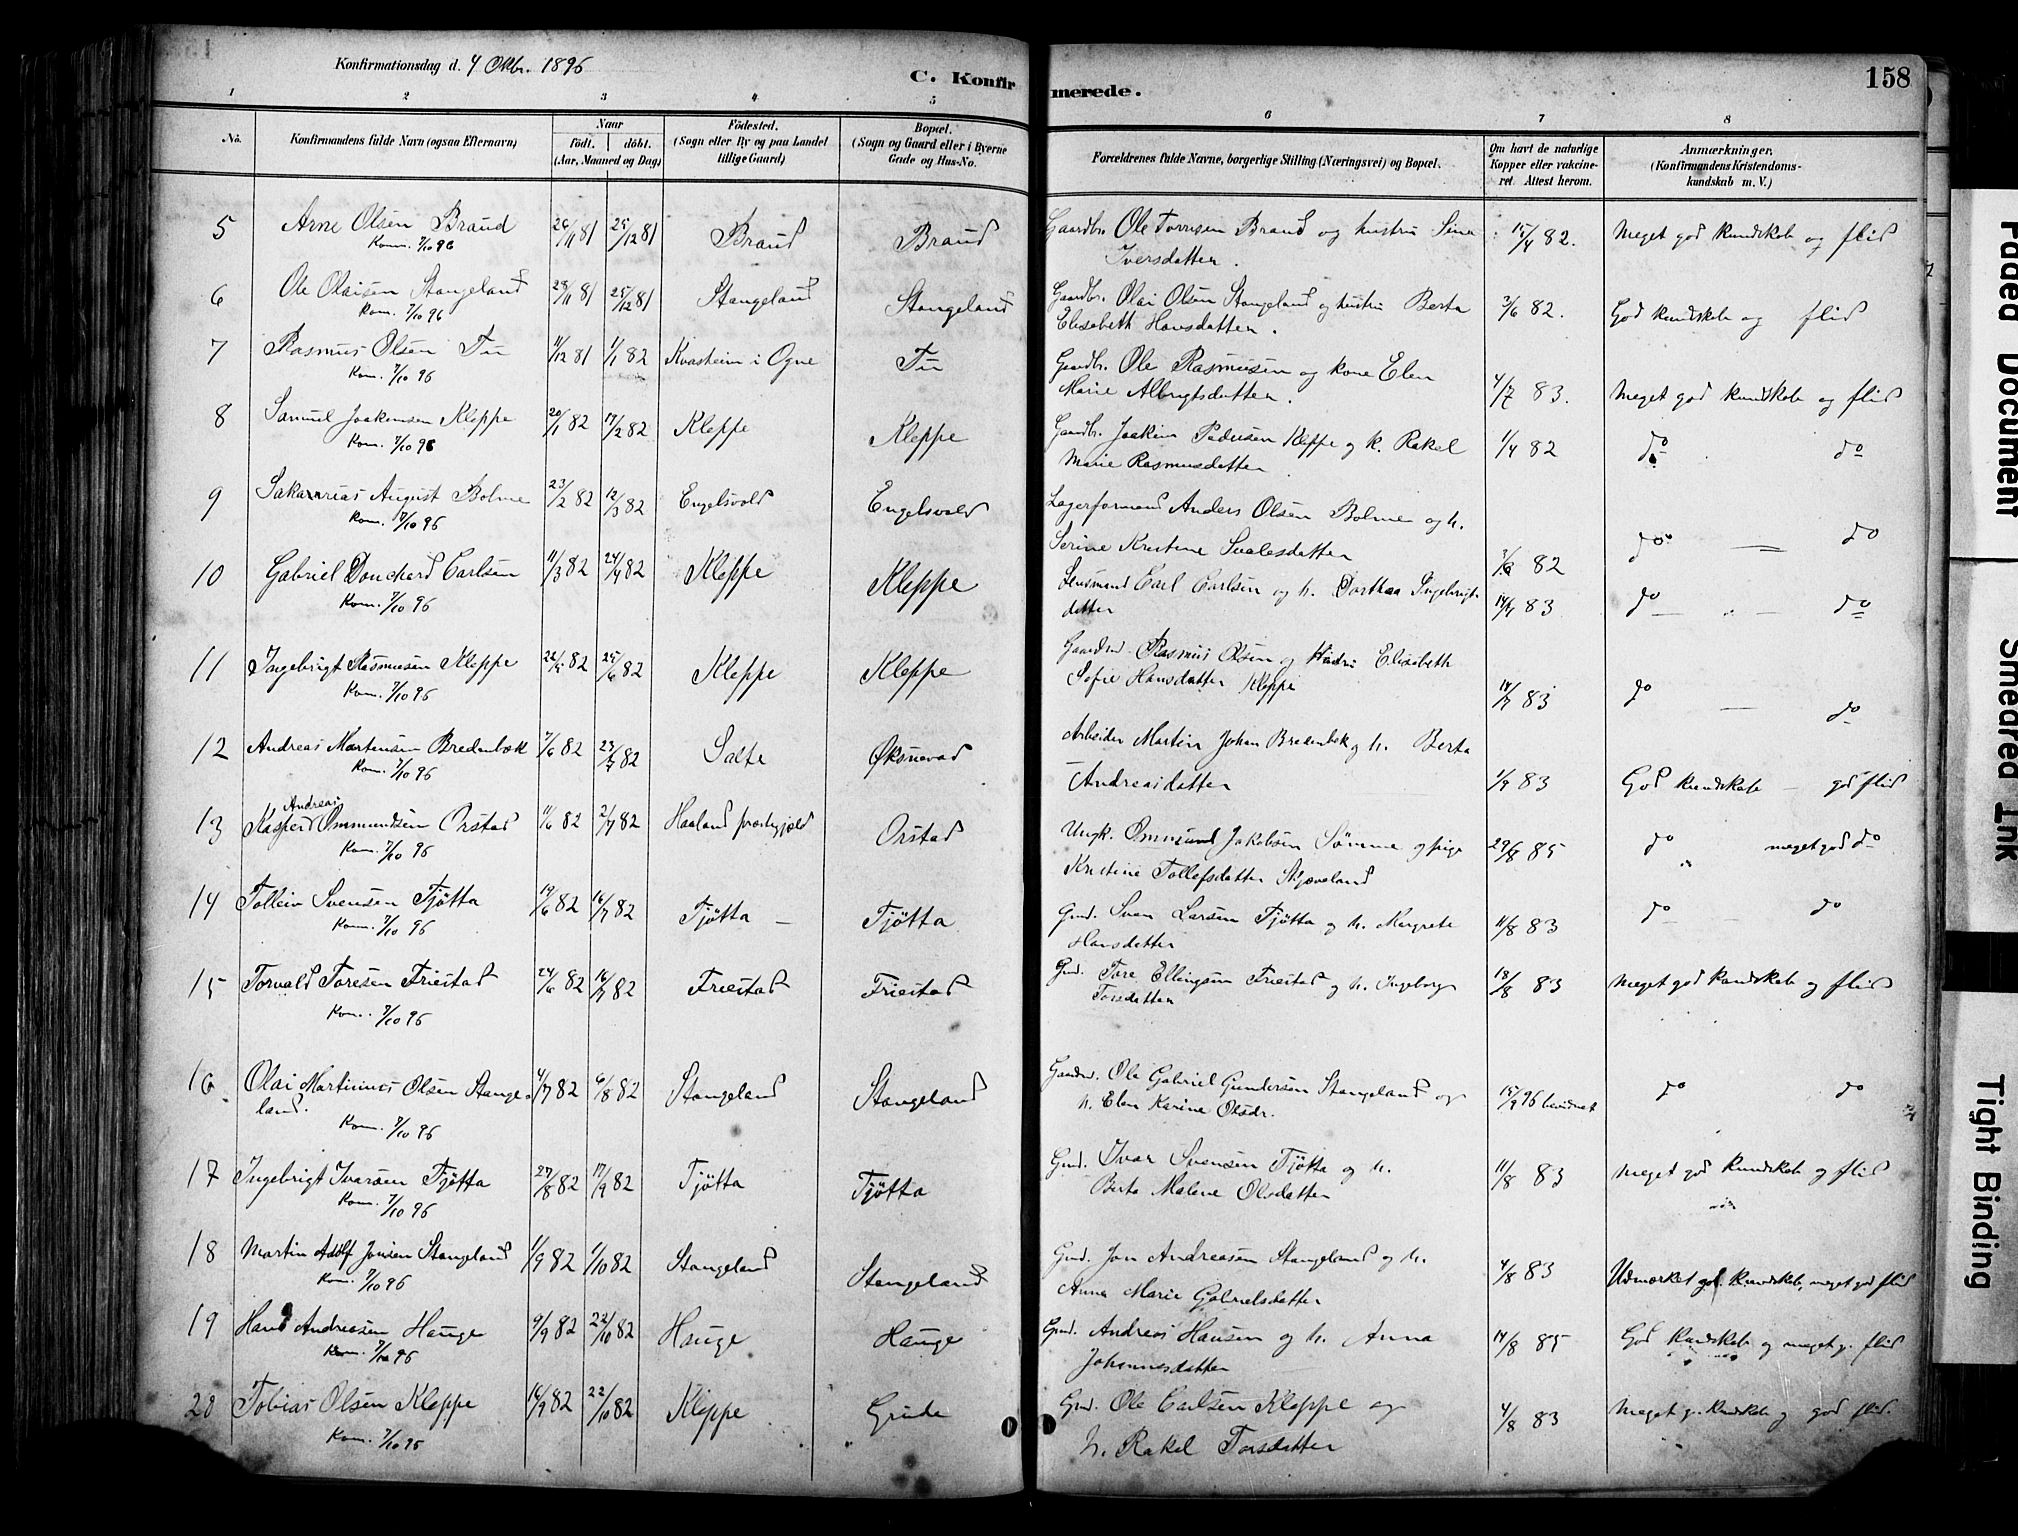 Konfirmationsdag d. 4 Oktbr. 1896
C. Konfirmerede.
158
1 2 3 4 5 6 7 8
No.
Konfirmandens fulde Navn (ogsaa Efternavn)
Naar
födt. döbt.
(Aar, Maaned og Dag)
Födested.
(Sogn eller By og paa Landet
tillige Gaard)
Bopæl.
(Sogn og Gaard eller i Byerne
Gade og Hus-No.
Forældrenes fulde Navne, borgerlige Stilling (Næringsvei) og Bopæl.
Om havt de naturlige
Kopper eller vakcine-
ret. Attest herom.
Anmærkninger,
(Konfirmandens Kristendoms-
kundskab m. V.)
5 Arne Olsen Braud 26/11 81 25/12 81 Braud Braud Gaardbr. Ole Torresen Braud og hustru Sina 15/4 82. Meget god kundskab og flid
Kom. 7/10 96 Iversdatter.
6 Ole Olaisen Stangeland 28/11 81 25/12 81 Stangeland Stangeland Gaardbr. Olai Olsen Stangeland og hustru Berta 3/6 82. God kundskab og flid
Kom. 7/10 96 Elisabeth Hansdatter.
7 Rasmus Olsen Tu 11/12 81 1/1 82 Kvasheim i Ogne Tu Gaardbr. Ole Rasmussen og kone Elen 4/7 83. Meget god kundskab og flid
Kom. 7/10 96 Marie Albregtsdatter.
8 Samuel Joakimsen Kleppe 20/1 82 17/2 82 Kleppe Kleppe Gaardbr. Joakim Pedersen Kleppe og k. Rakel 1/4 82 do do
Kom. 7/10 96 Marie Rasmusdatter
9 Sakarias August Bolme 23/2 82 12/3 82 Engelsvold Engelsvold Lagerformand Anders Olsen Bolme og h. 3/6 82 do do
Kom. 7/10 96 Serine Kristine Svalesdatter
10 Gabriel Bouchard Carlsen 11/3 82 24/4 82 Kleppe Kleppe Lensmand Carl Carlsen og h. Dorthea Ingebrigts- 14/7 83 do do
Kom. 7/10 96 datter
11 Ingebrigt Rasmussen Kleppe 22/5 82 25/6 82 Kleppe Kleppe Gaardm. Rasmus Olsen og Hustru Elisabeth 14/7 83 do do
Kom. 7/10 96 Sofie Hansdatter Kleppe
12 Andreas Martinsen Bredenbek 7/6 82 23/7 82 Salte Øksnevad Arbeider Martin Johan Bredenbek og h. Berta 1/9 83 God kundskab - god flid
Kom. 7/10 96 Andreasdatter
Andreas
13 Kasper Ommundsen Orstad 11/6 82 2/7 82 Haaland præstegjæld Orstad Ungk. Ommund Jakobsen Sømme og pige 29/8 85 do meget god do
Kom. 7/10 96 Kristine Tollefsdatter Skjæveland
14 Tolleiv Svensen Tjøtta 19/6 82 16/7 82 Tjøtta - Tjøtta Gmd. Sven Larsen Tjøtta og h. Margrete 11/8 83 do do
Kom. 7/10 96 Hansdatter
15 Torvald Toresen Friestad 24/6 82 16/7 82 Friestad Friestad Gmd. Tore Ellingsen Friestad og h. Ingeborg 18/8 83 Meget god kundskab og flid
Kom. 7/10 96 Torsdatter
16 Olai Martinus Olsen Stange- 4/7 82 6/8 82 Stangeland Stangeland Gaardm. Ole Gabriel Gundersen Stangeland og 15/9 96 do do
land. h. Elen Karine Olsdr.
Kom. 7/10 96
17 Ingebrigt Ivarsen Tjøtta 27/8 82 17/9 82 Tjøtta Tjøtta Gmd. Ivar Svensen Tjøtta og h. 11/8 83 Meget god kundskab og flid
Kom. 7/10 96 Berta Malene Olsdatter
18 Martin Adolf Jonsen Stangeland 1/9 82 1/10 82 Stangeland Stangeland Gmd. Jon Andreasen Stangeland og h. 4/8 83 Udmærket god kundskab, meget god flid
Kom. 7/10 96 Anna Marie Gabrielsdatter
19 Hans Andreasen Hauge 9/9 82 22/10 82 Hauge Hauge Gmd. Andreas Hansen og h. Anna 14/8 85 God kundskab og meget g. flid
Kom. 7/10 96 Johannesdatter
20 Tobias Olsen Kleppe 14/9 82 22/10 82 Kleppe Grude Gmd. Ole Carlsen Kleppe og 4/8 83 Meget g. kundskab og god flid.
Kom. 7/10 96 h. Rakel Torsdatter
Faded Document
Smeared Ink
Tight Binding